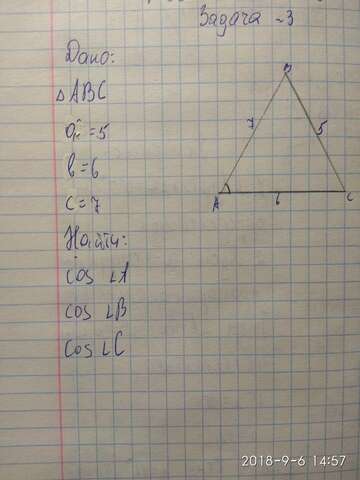 Задача -3
Дано:
△ ABC
a=5
b=6
c=7
Найти:
cos ∠A
cos ∠B
cos ∠C
B
7
5
A
6
C
2018-9-6 14:57